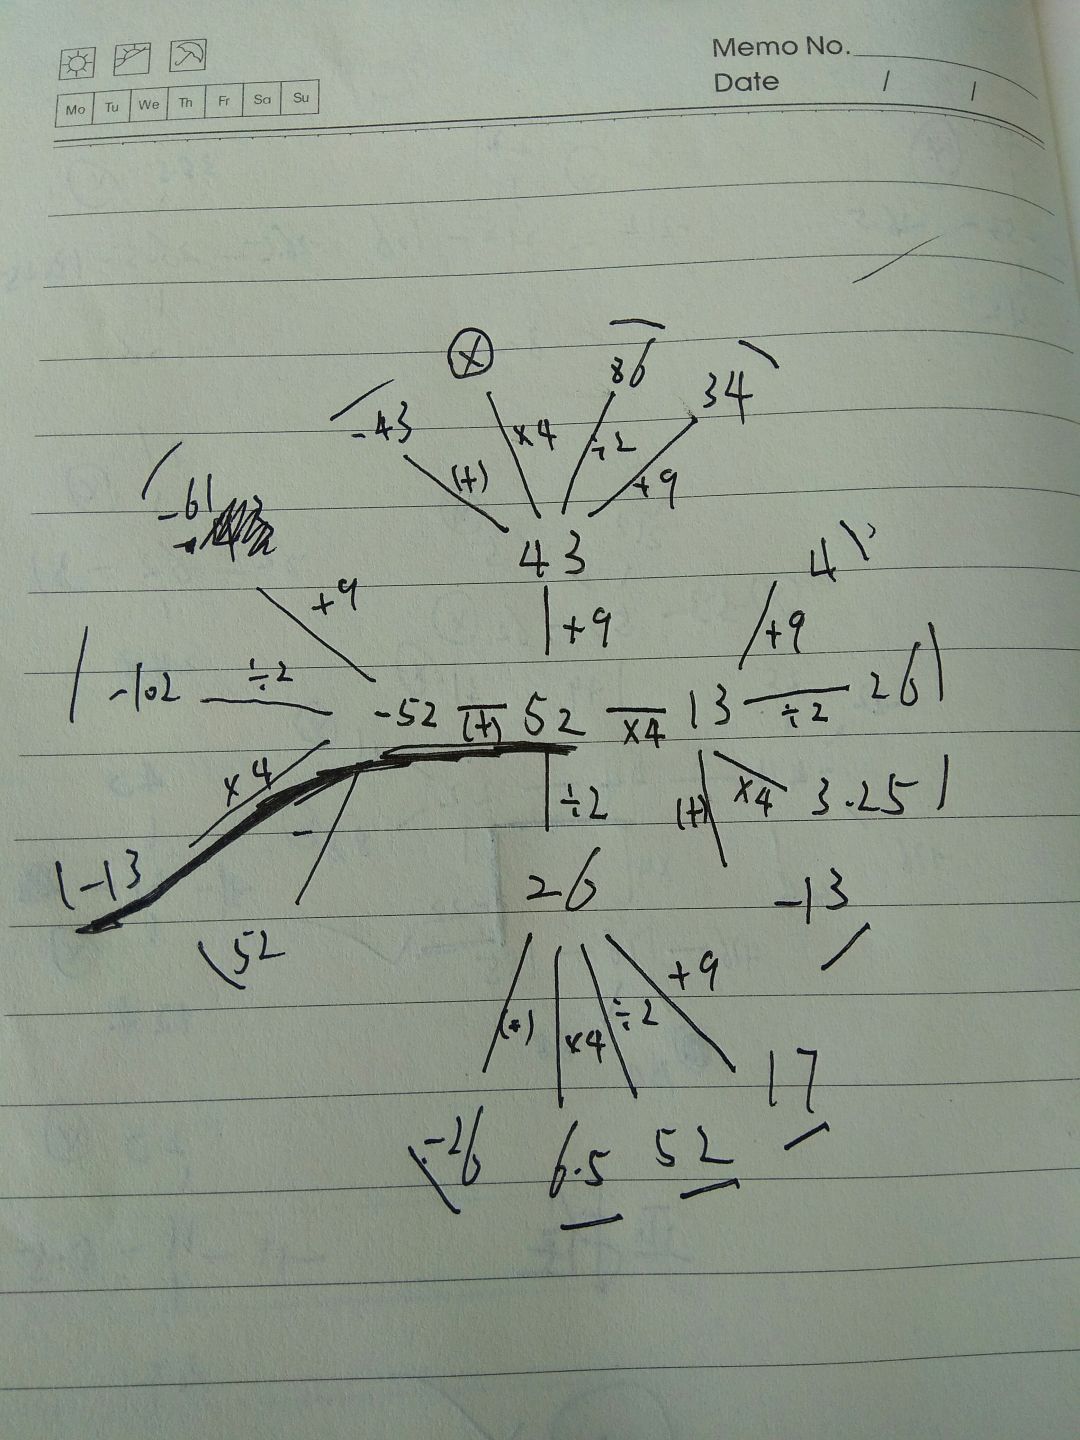 Memo No.
Date / /
Mo Tu We Th Fr Sa Su
86
34
-43
×4
÷2
(+)
+9
-61
43
4
+9
+9
+9
÷2
-102
-52 (+) 52 ×4 13 ÷2 26
×4
÷2
(+) ×4 3.25
-
-13
26
-13
52
+9
×4 ÷2
17
-26 6.5 52